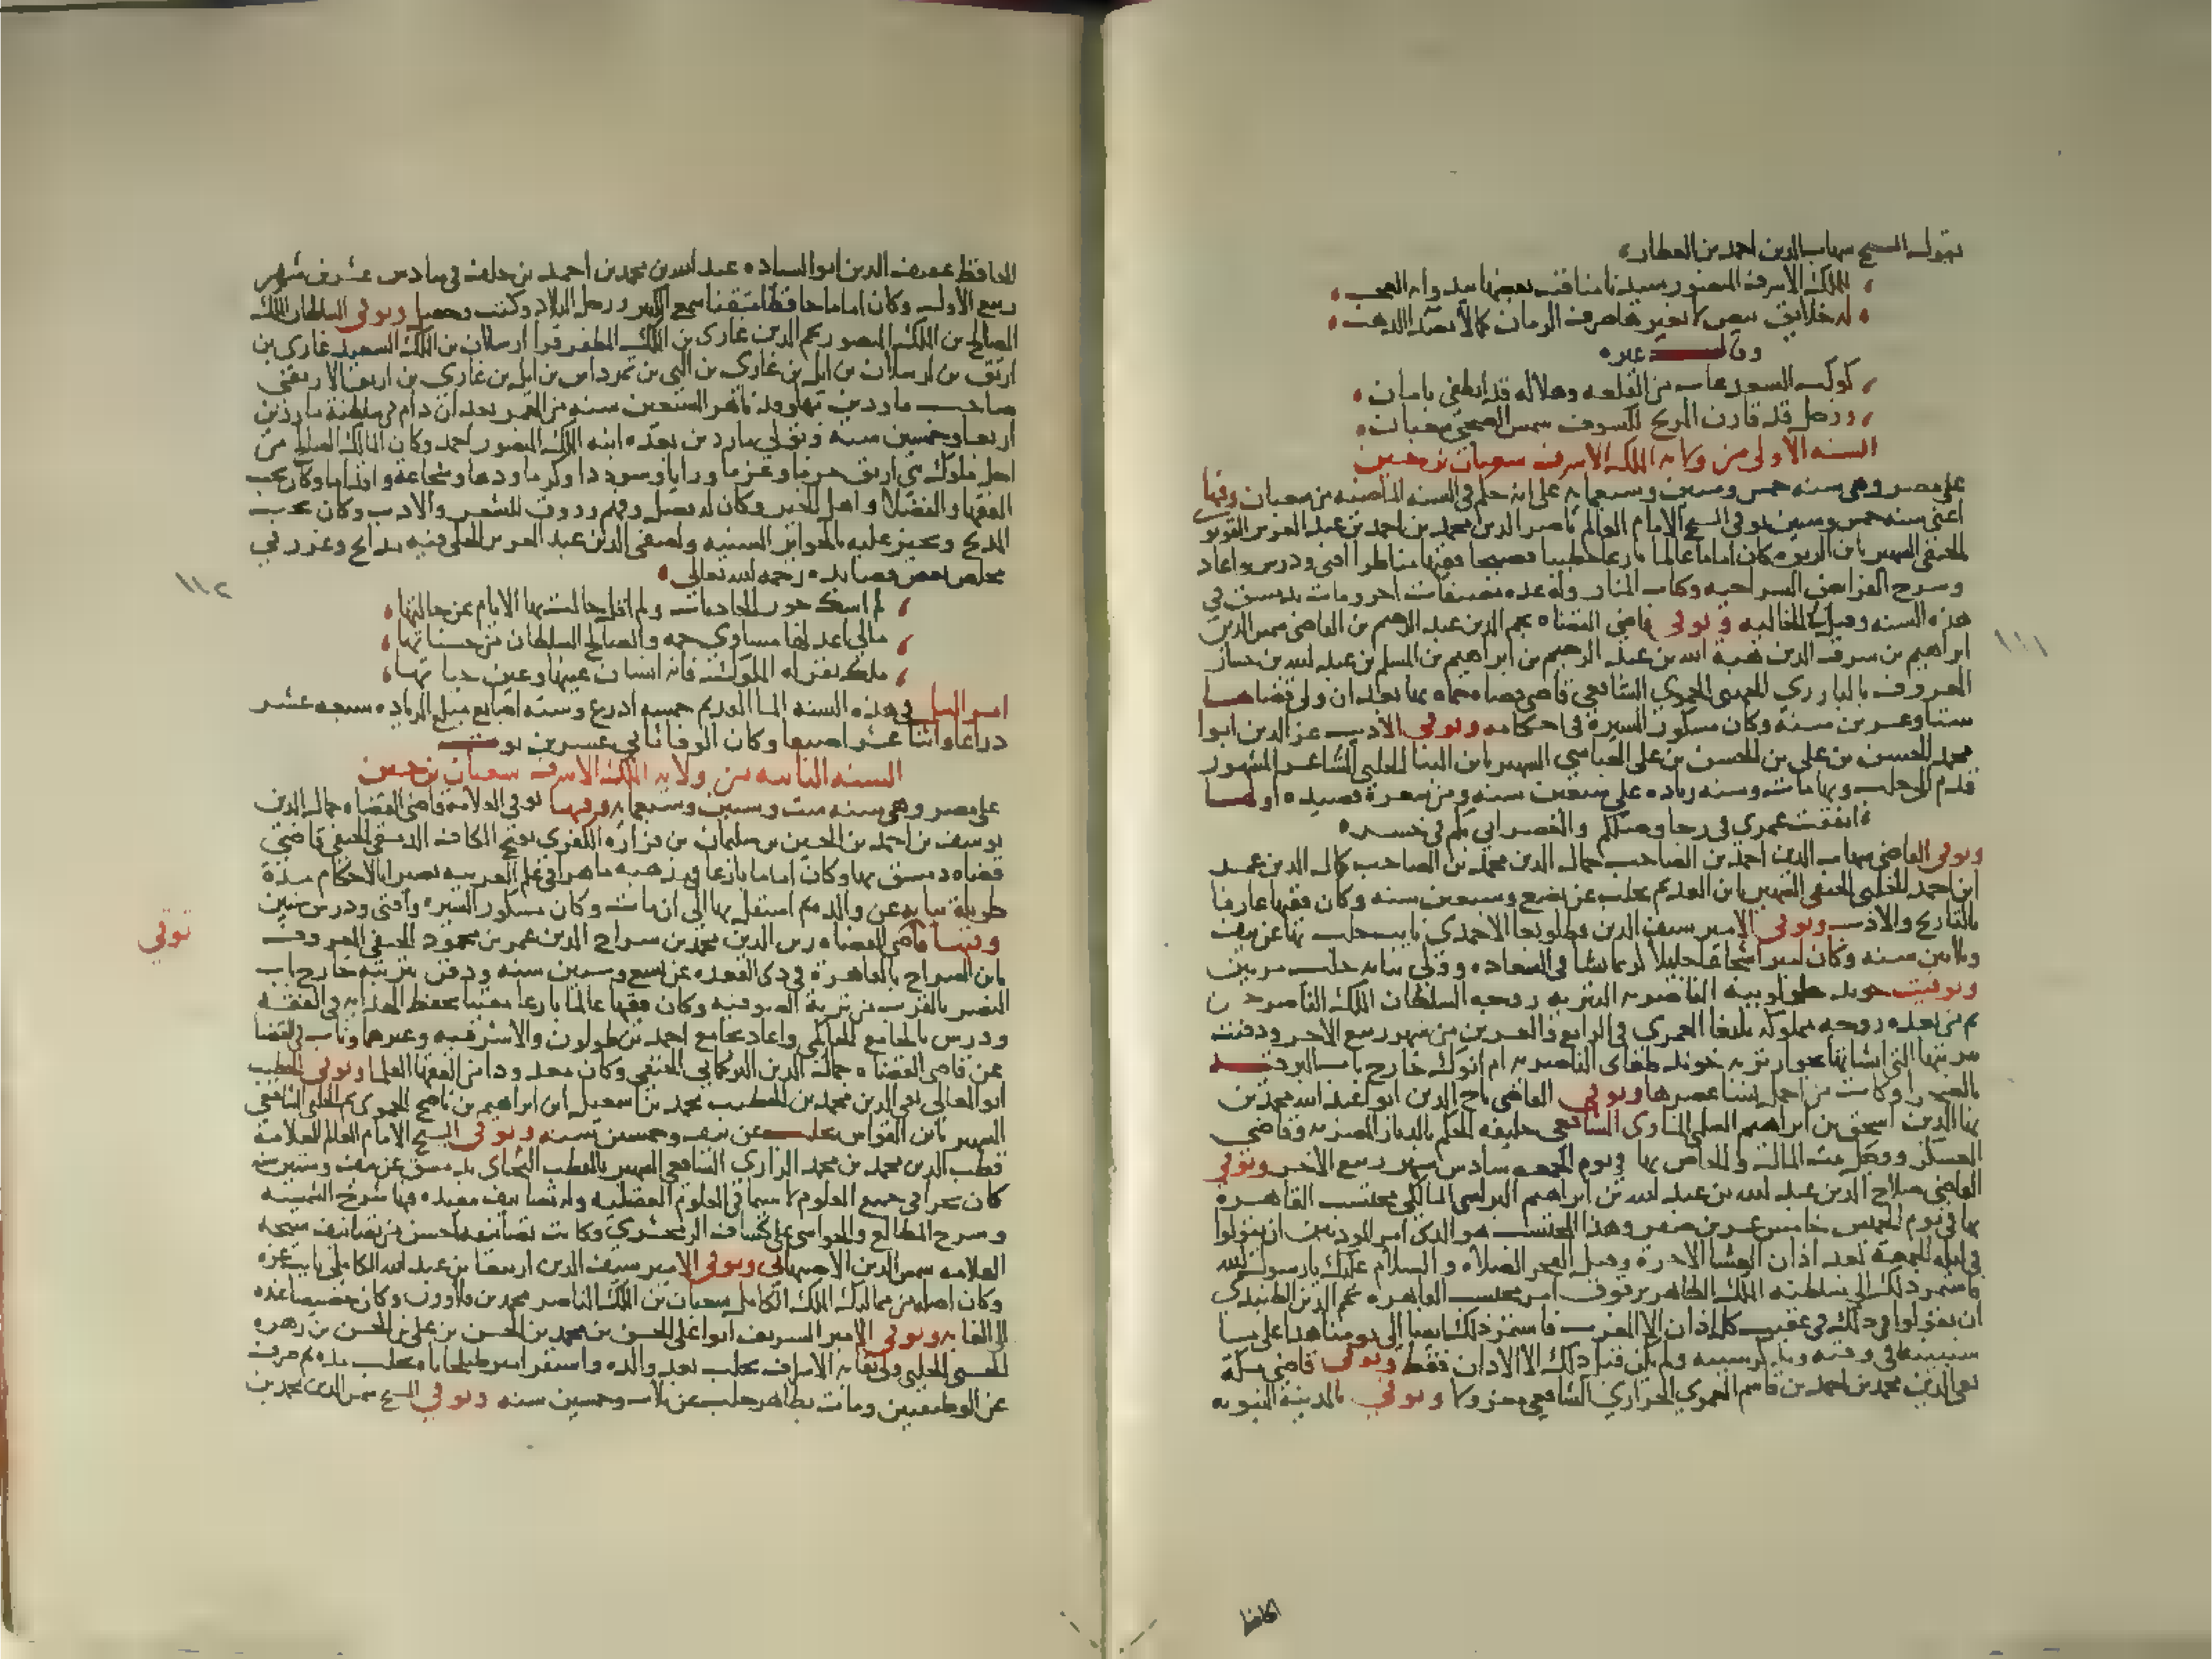 يقول الشيخ شهاب الدين احمد بن العطار
الملك الاشرف المنصور سيدنا مناقب بعضها يبدو به العجب
له خلائق بيض لا يغيرها صرف الزمان كما لا يصدا الذهب
وقال غيره
كوكب السعد غاب من القلعه وهلاله قد انطفى بامان
وزحل قد قارن المريخ لكسوف شمس الضحى شعبان
السنه الاولى من ولايه الملك الاشرف شعبان بن حسين
على مصر وهي سنه خمس وستين وسبعمايه على انه حكم في السنه الماضيه من شعبان وفيها
اعني سنه خمس وستين توفي الشيخ الامام العالم ناصر الدين محمد بن احمد بن عبد العزيز القونوي
الحنفي الشهير بابن الربوه كان اماما عالما بارعا خطيبا فصيحا فقيها مناظرا افتى ودرس واعاد
وشرح الفرائض السراجيه وكتاب المنار وله عده مصنفات اخر ومات بدمشق في
هذه السنه وقيل في الخاليه وتوفي قاضي القضاه نجم الدين عبد الرحيم بن القاضي شمس الدين
ابراهيم بن شرف الدين هبة الله بن عبد الرحيم بن ابراهيم بن المسلم بن عبد الله بن حسان
المعروف بالبارزي الجهني الحموي الشافعي قاضي قضاه حماه بها بعد ان ولي قضاها
ستا وعشرين سنة وكان مشكور السيرة في احكامه وتوفي الاديب عز الدين ابوا
محمد الحسن بن علي بن الحسن بن علي العباسي الشهير بابن البنا الحلبي الشاعر المشهور
قدم الى حلب وبها مات وسنه زياده على سبعين سنه ومن شعره قصيده اولها
انفقت عمري في رجا وصلكم والعصر اني بكم في خسر
وتوفي القاضي شهاب الدين احمد بن الصاحب جمال الدين محمد بن الصاحب كمال الدين عمر
ابن احمد الحلبي الحنفي الشهير بابن العديم بحلب عن بضع وسبعين سنه وكان فقيها عارفا
بالتاريخ والادب وتوفي الامير سيف الدين قطلوبغا الاحمدي نايب حلب بها عن نيف
وثلاثين سنه وكان اميرا شجاعا جليلا كريما نشا في السعاده وولي نيابه حلب مرتين
وتوفيت خوند طولوبيه الناصريه التتريه زوجه السلطان الملك الناصر حسن
ثم من بعده زوجه مملوكه يلبغا العمري في الرابع والعشرين من شهر ربيع الاخر ودفنت
بتربتها التي انشاتها بجوار تربه خوند طغاى الناصريه ام انوك خارج باب البرقيه
بالصحرا وكانت من اجمل نسا عصرها وتوفي القاضي تاج الدين ابو عبد الله محمد بن
بها الدين اسحق بن ابراهيم السلمي المناوى الشافعي خليفه الحكم بالديار المصريه وقاضي
العسكر ووكيل بيت المال والخاص بها في يوم الجمعه سادس شهر ربيع الاخر وتوفي
القاضي صلاح الدين عبد الله بن عبد الله بن ابراهيم البرلسي المالكي محتسب القاهره
بها في يوم الخميس خامس عشرين صفر وهذا المحتسب هو الذي امر الموذنين ان يقولوا
في ليله الجمعة بعد اذان العشا الاخرة وقبل الفجر الصلاه والسلام عليك يا رسول الله
فاستمر ذلك الى سلطنة الملك الظاهر برقوق امر محتسب القاهره نجم الدين الطنبدي
ان يقولوا ذلك في عقيب كل اذان الا المغرب فاستمر ذلك ايضا الى يومنا هذا على ما
سنبينه في وقته ونذكر سببه ولم يكن قبل ذلك الا الاذان فقط وتوفي قاضي مكة
تقي الدين محمد بن احمد بن قاسم العمري الحرازي الشافعي معزولا وتوفي بالمدينة النبويه
الحافظ
الحافظ عفيف الدين ابو السياده عبد الله بن محمد بن احمد بن خلف في سادس عشرين شهر
ربيع الاول وكان اماما حافظا متقنا سمع الكثير ورحل البلاد وكتب وحصل وتوفي السلطان الملك
الصالح بن الملك المنصور نجم الدين غازي بن الملك المظفر قرا ارسلان بن الملك السعيد غازي بن
ارتق بن ارسلان بن ايل بن غازي بن البي بن تمرداس بن ايل بن غازي بن ارتق الارتقي
صاحب ماردين بها وقد ناهز السبعين سنه من العمر بعد ان دام في سلطنة ماردين
اربعا وخمسين سنه وتولى ماردين بعده ابنه الملك المنصور احمد وكان الملك الصالح من
اجل ملوك بني ارتق حزما وعزما ورايا وسوددا وكرما ودها وشجاعة واقداما وكان يحب
الفقها والفضلا واهل الخير وكان له فضل وفهم وذوق للشعر والادب وكان يحب
المديح ويجيز عليه بالجوائز السنيه ولصفي الدين عبد العزيز الحلي فيه مدائح وغرر في
مخلص بعض قصايده رحمه الله تعالى
لم اشك جور الحادثات ولم اقل حالت بها الايام عن حالاتها
مالي اعد لها مساوي جمه والصالح السلطان من حسناتها
ملك تقر له الملوك بانه انسان عينها وعين حياتها
امر النيل في هذه السنه الما القديم خمسه اذرع وسته اصابع مبلغ الزياده سبعه عشر
ذراعا واثنا عشر اصبعا وكان الوفا ثاني عشرين توت
السنه الثانيه من ولايه الملك الاشرف شعبان بن حسين
على مصر وهي سنه ست وستين وسبعمايه وفيها توفي العلامة قاضي القضاه جمال الدين
يوسف بن احمد بن الحسين بن سليمان بن فزاره الكفري بفتح الكاف الدمشقي الحنفي قاضي
قضاه دمشق بها وكان اماما بارعا في مذهبه ماهرا في علم العربيه بصيرا بالاحكام مدة
طويلة نيابه عن والده ثم استقل بها الى ان مات وكان مشكور السيره وافتى ودرس سنين
وفيها قاضي القضاه زين الدين محمد بن سراج الدين عمر بن محمود الحنفي المعروف
توفي
بابن السراج بالقاهرة في ذي القعده عن تسع وستين سنه ودفن بتربته خارج باب
النصر بالقرب من تربة الصوفيه وكان فقيها عالما بارعا مفتيا يحفظ الهدايه في الفقه
ودرس بالجامع الحاكمي واعاد بجامع احمد بن طولون والاشرفيه وغيرها وناب في القضا
عن قاضي القضاه جمال الدين التركماني الحنفي وكان معدودا من الفقها العلما وتوفي الخطيب
ابو المعالي تقي الدين محمد بن الخطيب محمد بن اسمعيل ابن ابراهيم بن ناصح الحموي ثم الحلبي الشافعي
الشهير بابن القواس بحلب عن نيف وخمسين سنه وتوفي الشيخ الامام العالم العلامة
قطب الدين محمد بن محمد الرازي الشافعي الشهير بالقطب التحتاني بدمشق عن نيف وستين سنه
كان بحرا في جميع العلوم لا سيما في العلوم العقليه وله تصانيف مفيده منها شرح الشمسيه
وشرح المطالع والحواشي على كشاف الزمخشري وكانت تصانيفه احسن من تصانيف شيخه
العلامه شمس الدين الاصبهاني وتوفي الامير سيف الدين ارنبغا بن عبد الله الكاملي نايب غزه
وكان اصله من مماليك الملك الكامل شعبان بن الملك الناصر محمد بن قلاوون وكان خصيصا عنده
الى الغايه وتوفي الامير الشريف ابوا علي الحسن بن محمد بن الحسن بن علي بن الحسن بن زهره
الحسني الحلبي ولي نقابه الاشراف بحلب بعد والده واستقر امير طبلخاناه بحلب مده ثم صرف
عن الوظيفتين ومات بظاهر حلب عن ثلاث وخمسين سنه وتوفي الشيخ شمس الدين محمد بن